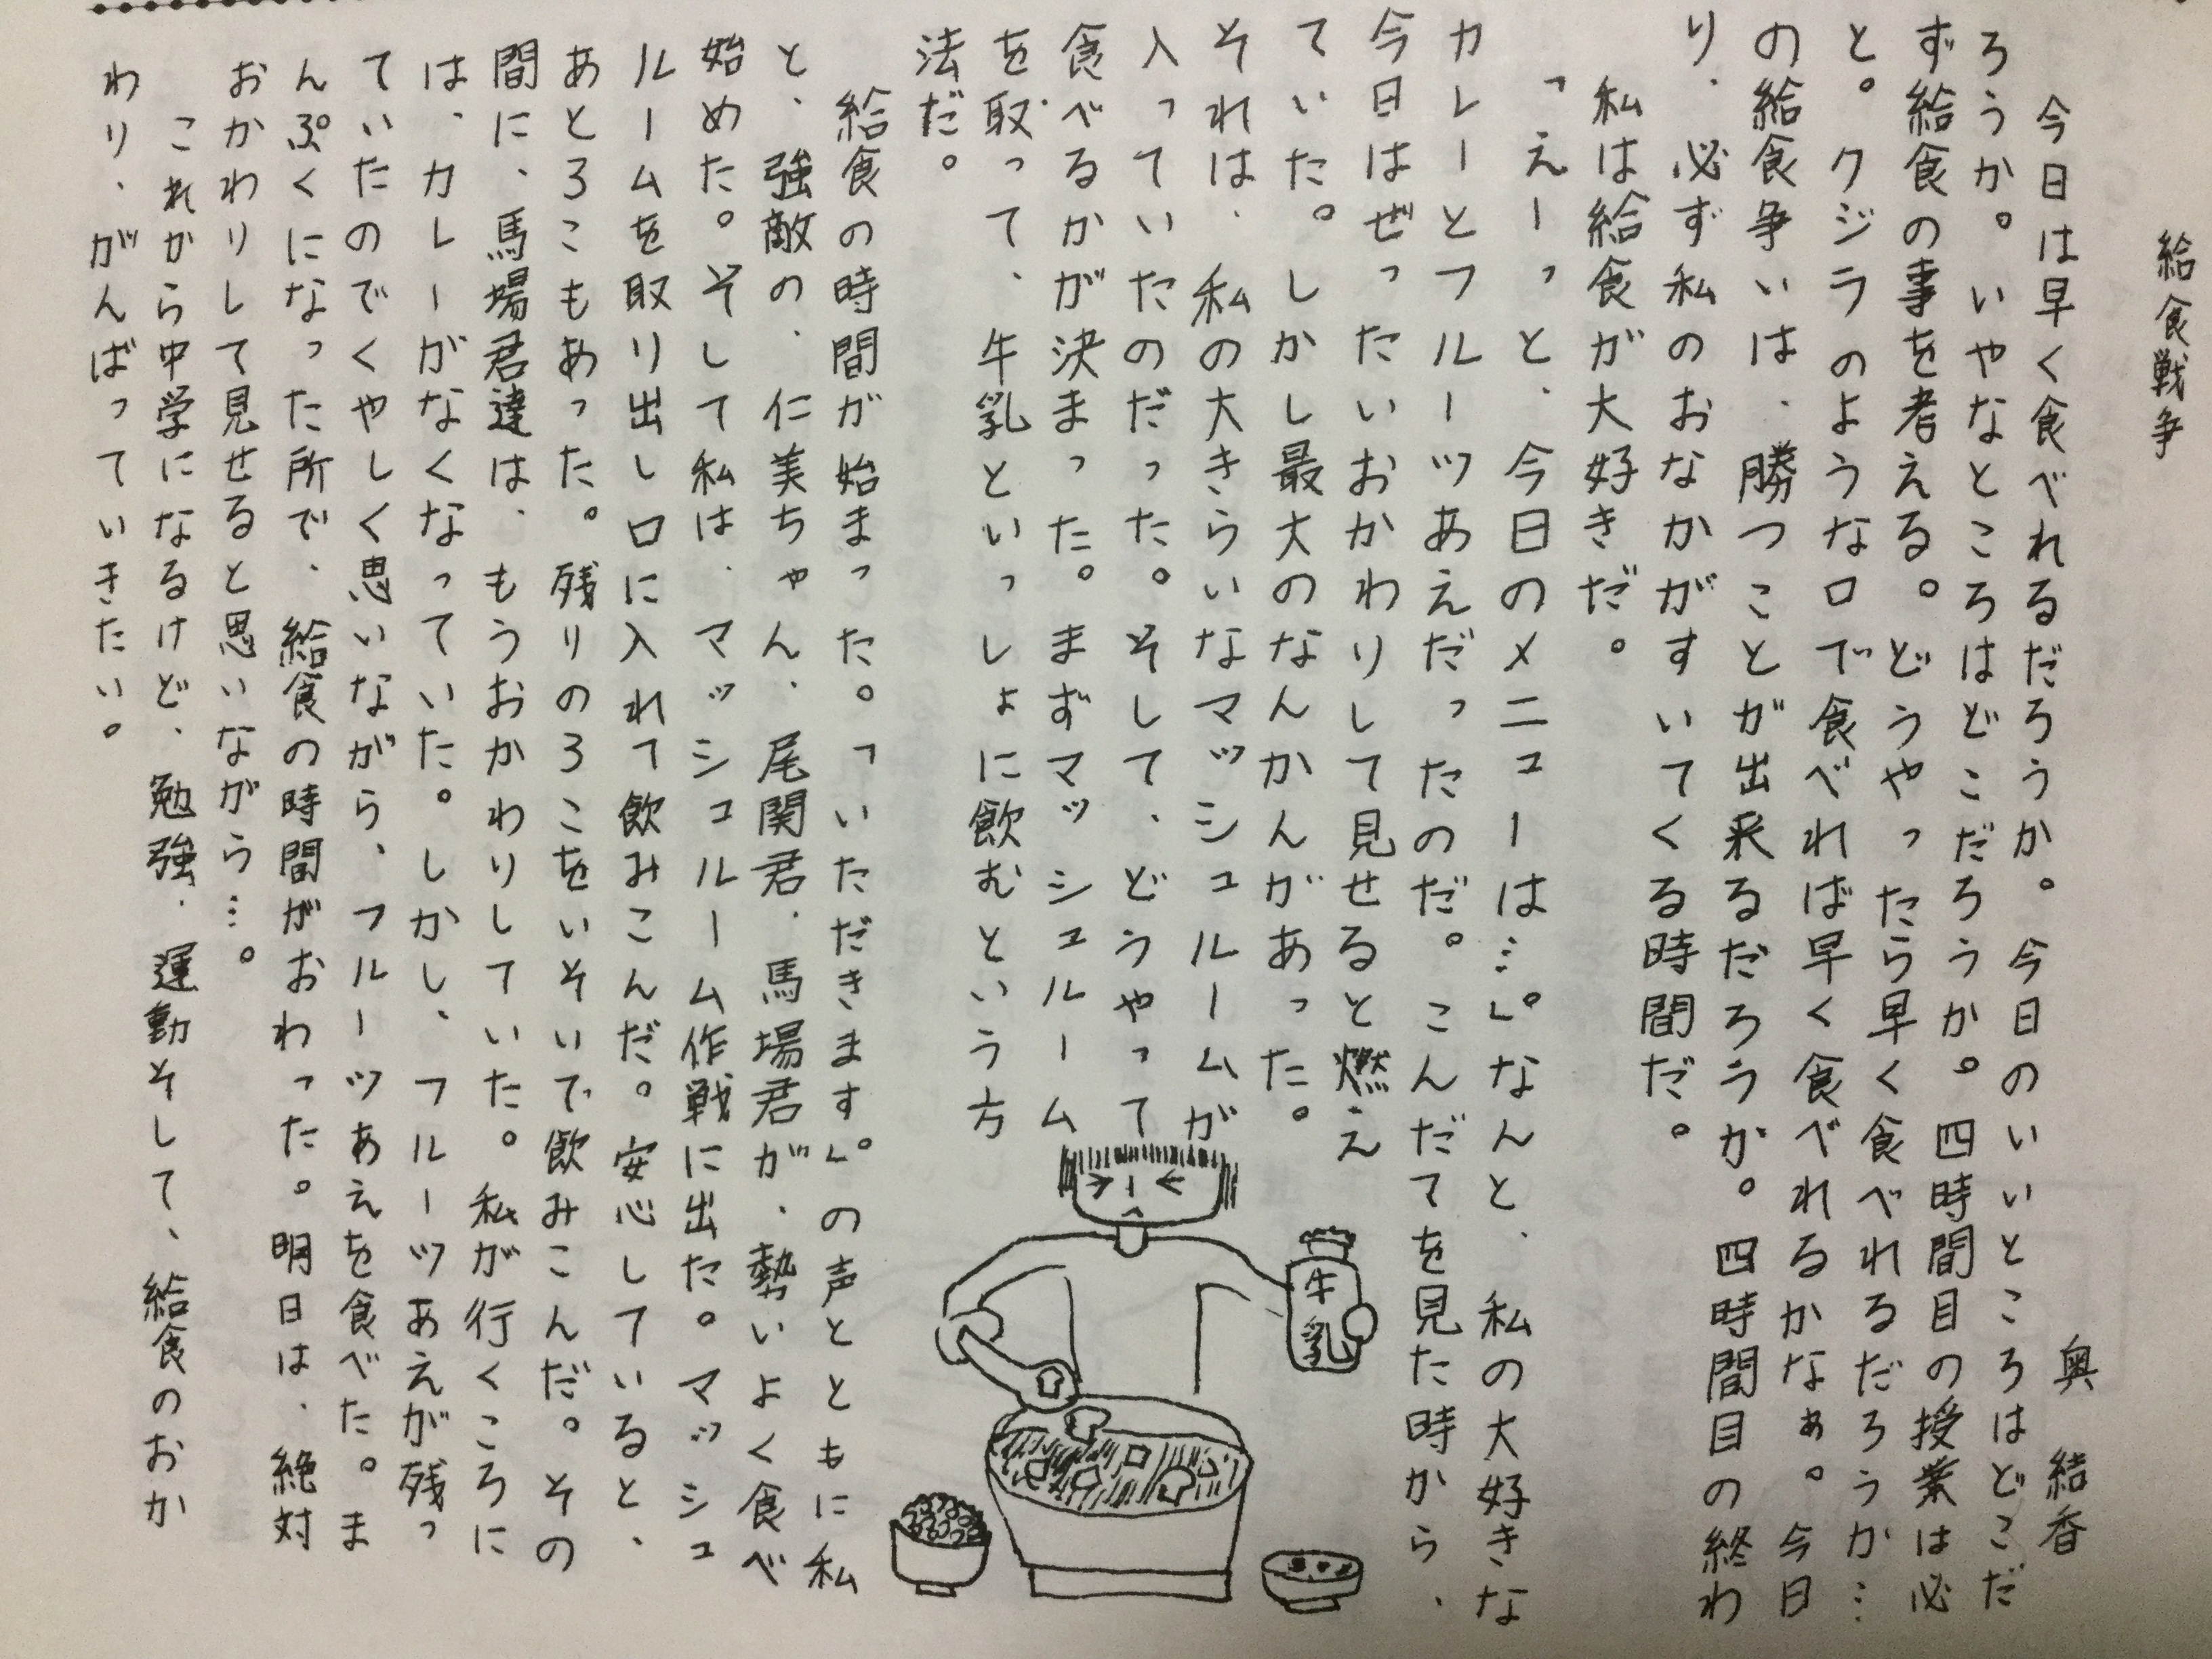 給食戦争
奥　結香
今日は早く食べれるだろうか。今日のいいところはどこだ
ろうか。いやなところはどこだろうか。四時間目の授業は必
ず給食の事を考える。どうやったら早く食べれるだろうか…
と。クジラのような口で食べれば早く食べれるかなぁ。今日
の給食争いは、勝つことが出来るだろうか。四時間目の終わ
り、必ず私のおなかがすいてくる時間だ。
私は給食が大好きだ。
「えーっと、今日のメニューは…。」なんと、私の大好きな
カレーとフルーツあえだったのだ。こんだてを見た時から、
今日はぜったいおかわりして見せると燃え
ていた。しかし最大のなんかんがあった。
それは、私の大きらいなマッシュルームが
入っていたのだった。そして、どうやって
食べるかが決まった。まずマッシュルーム
を取って、牛乳といっしょに飲むという方
法だ。
給食の時間が始まった。「いただきます。」の声とともに私
と、強敵の、仁美ちゃん、尾関君、馬場君が、勢いよく食べ
始めた。そして私は、マッシュルーム作戦に出た。マッシュ
ルームを取り出し口に入れて飲みこんだ。安心していると、
あとろこもあった。残りのろこをいそいで飲みこんだ。その
間に、馬場君達は、もうおかわりしていた。私が行くころに
は、カレーがなくなっていた。しかし、フルーツあえが残っ
ていたのでくやしく思いながら、フルーツあえを食べた。ま
んぷくになった所で、給食の時間がおわった。明日は、絶対
おかわりして見せると思いながら…。
これから中学になるけど、勉強、運動そして、給食のおか
わり、がんばっていきたい。
牛乳